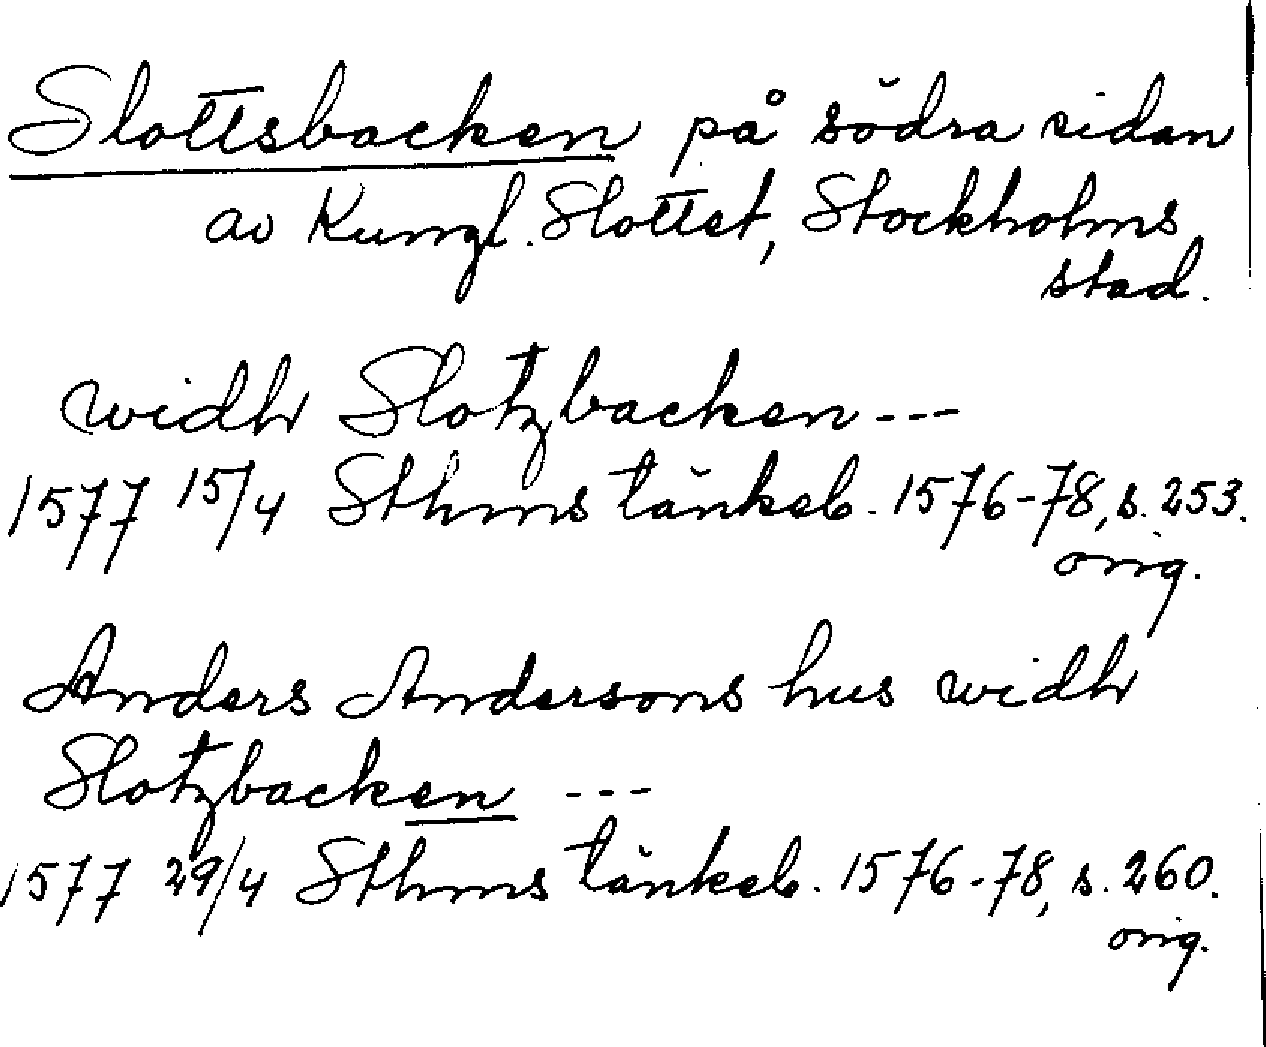 Slottsbacken på södra sidan
av Kungl. Slottet, Stockholms
stad.
widhr Slotzbacken ---
1577 15/4 Sthms tänkeb. 1576-78, s. 253.
orig.
Anders Andersons hus widhr
Slotzbacken ---
1577 29/4 Sthms tänkeb. 1576-78, s. 260.
orig.